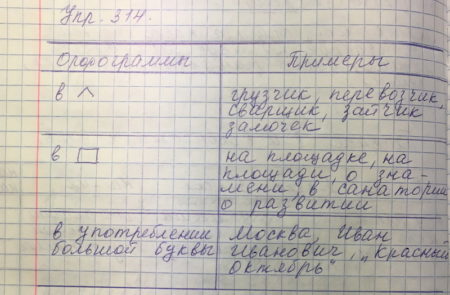 Упр. 314.
Орфограммы Примеры
в ^ грузчик, перевозчик,
сварщик, зайчик
замочек
в □ на площадке, на
площади, о зна-
мени, в санатории
о развитии
в употреблении Москва, Иван
большой буквы Иванович, „Красный
октябрь"